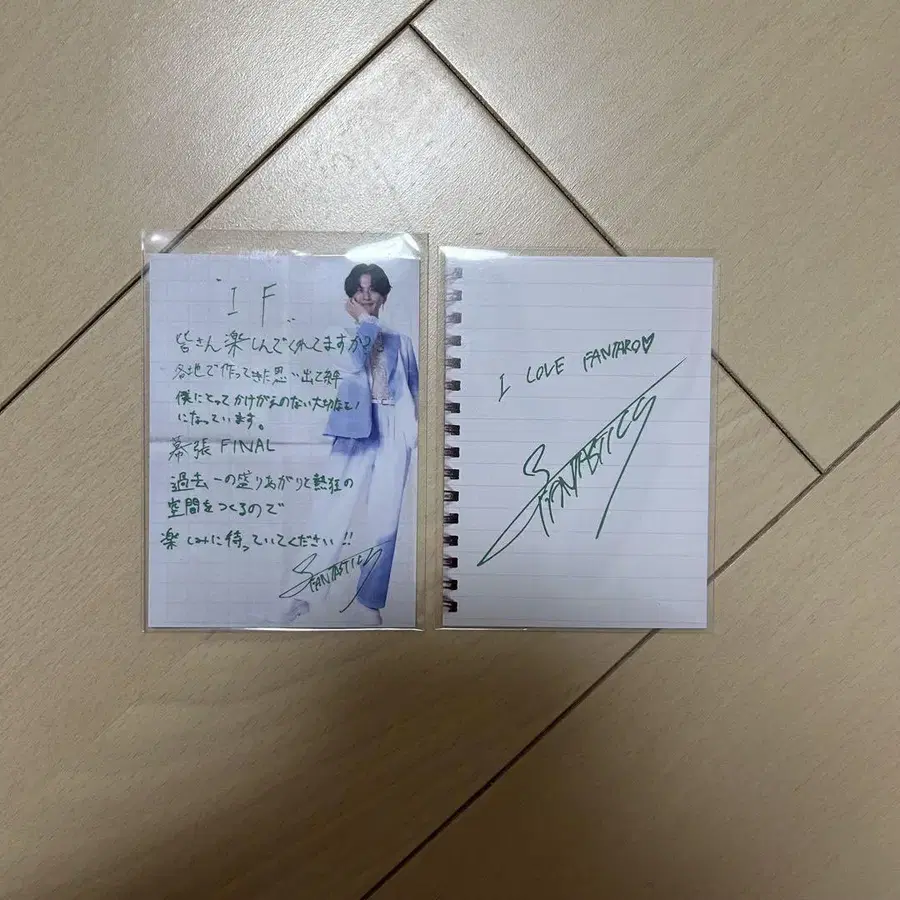 "IF"
皆さん楽しんでくれてますか?
各地で作ってきた思い出て絆
僕にとってかけがえのない大切な
になっています。
幕張 FINAL
過去一の盛りあがりと熱狂の
空間をつくるので
楽しみに待っていてください!!
FANTASTICS
I LOVE FANTARO♡
FANTASTICS